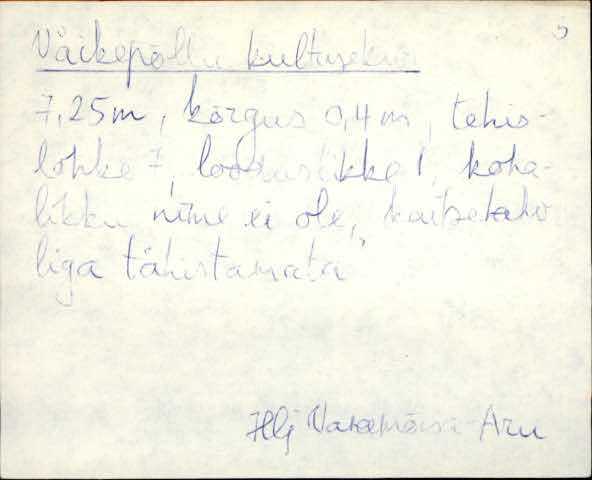 5
Väikepõllu kultusekivi
7,25m, kõrgus 0,4 m, tehis-
lohke 7, looduslikke 1, koha-
likku nime ei ole, kaitsetahv
liga tähistamata
Hlj Aru